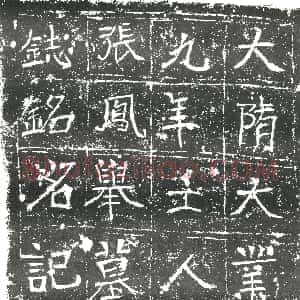 大隋大業
九年主人
張鳳舉墓
鋕銘名記